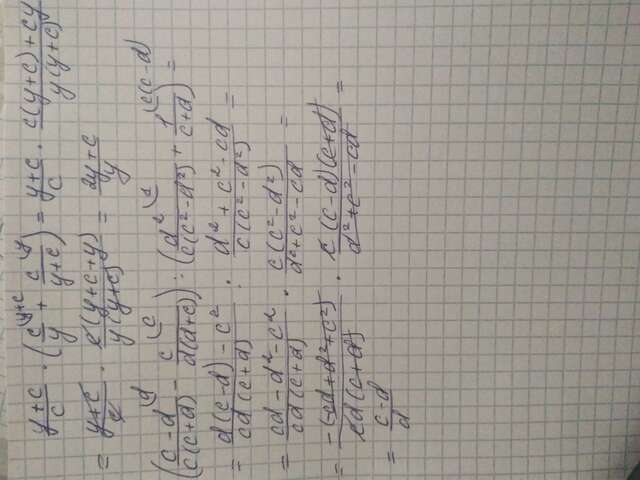 (y+c)/c · (c/y + c/(y+c)) = (y+c)/c · (c(y+c)+cy)/(y(y+c))
= (y+c)/c · c(y+c+y)/(y(y+c)) = (2y+c)/y
((c-d)/(c(c+d)) - c/(d(d+c))) : (d²/(c(c²-d²)) + 1/(c+d)) =
= (d(c-d)-c²)/(cd(c+d)) : (d²+c²-cd)/(c(c²-d²)) =
= (cd-d²-c²)/(cd(c+d)) · c(c²-d²)/(d²+c²-cd) =
= -(-cd+d²+c²)/(cd(c+d)) · c(c-d)(c+d)/(d²+c²-cd) =
= (c-d)/d